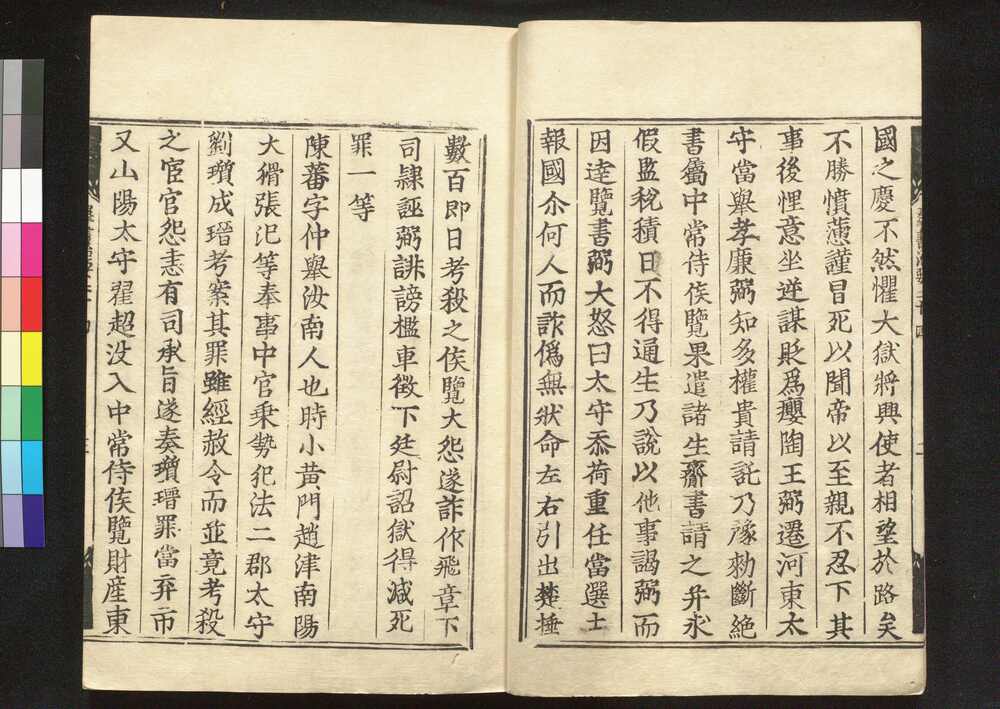 國之慶不然懼大獄將興使者相望於路矣
不勝憤懣謹冒死以聞帝以至親不忍下其
事後悝意坐逆謀貶爲癭陶王弼遷河東太
守當舉孝廉弼知多權貴請託乃豫勑斷絕
書屬中常侍侯覽果遣諸生齎書請之并求
假監稅積日不得通生乃說以他事謁弼而
因達覽書弼大怒曰太守忝荷重任當選士
報國尒何人而詐僞無狀命左右引出楚捶
數百即日考殺之侯覽大怨遂詐作飛章下
司隸誣弼誹謗檻車徵下廷尉詔獄得減死
罪一等
陳蕃字仲舉汝南人也時小黃門趙津南陽
大猾張汜等奉事中官乗勢犯法二郡太守
劉瓆成瑨考案其罪雖經赦令而並竟考殺
之宦官怨恚有司承旨遂奏瓆瑨罪當弃市
又山陽太守翟超没入中常侍侯覽財産東